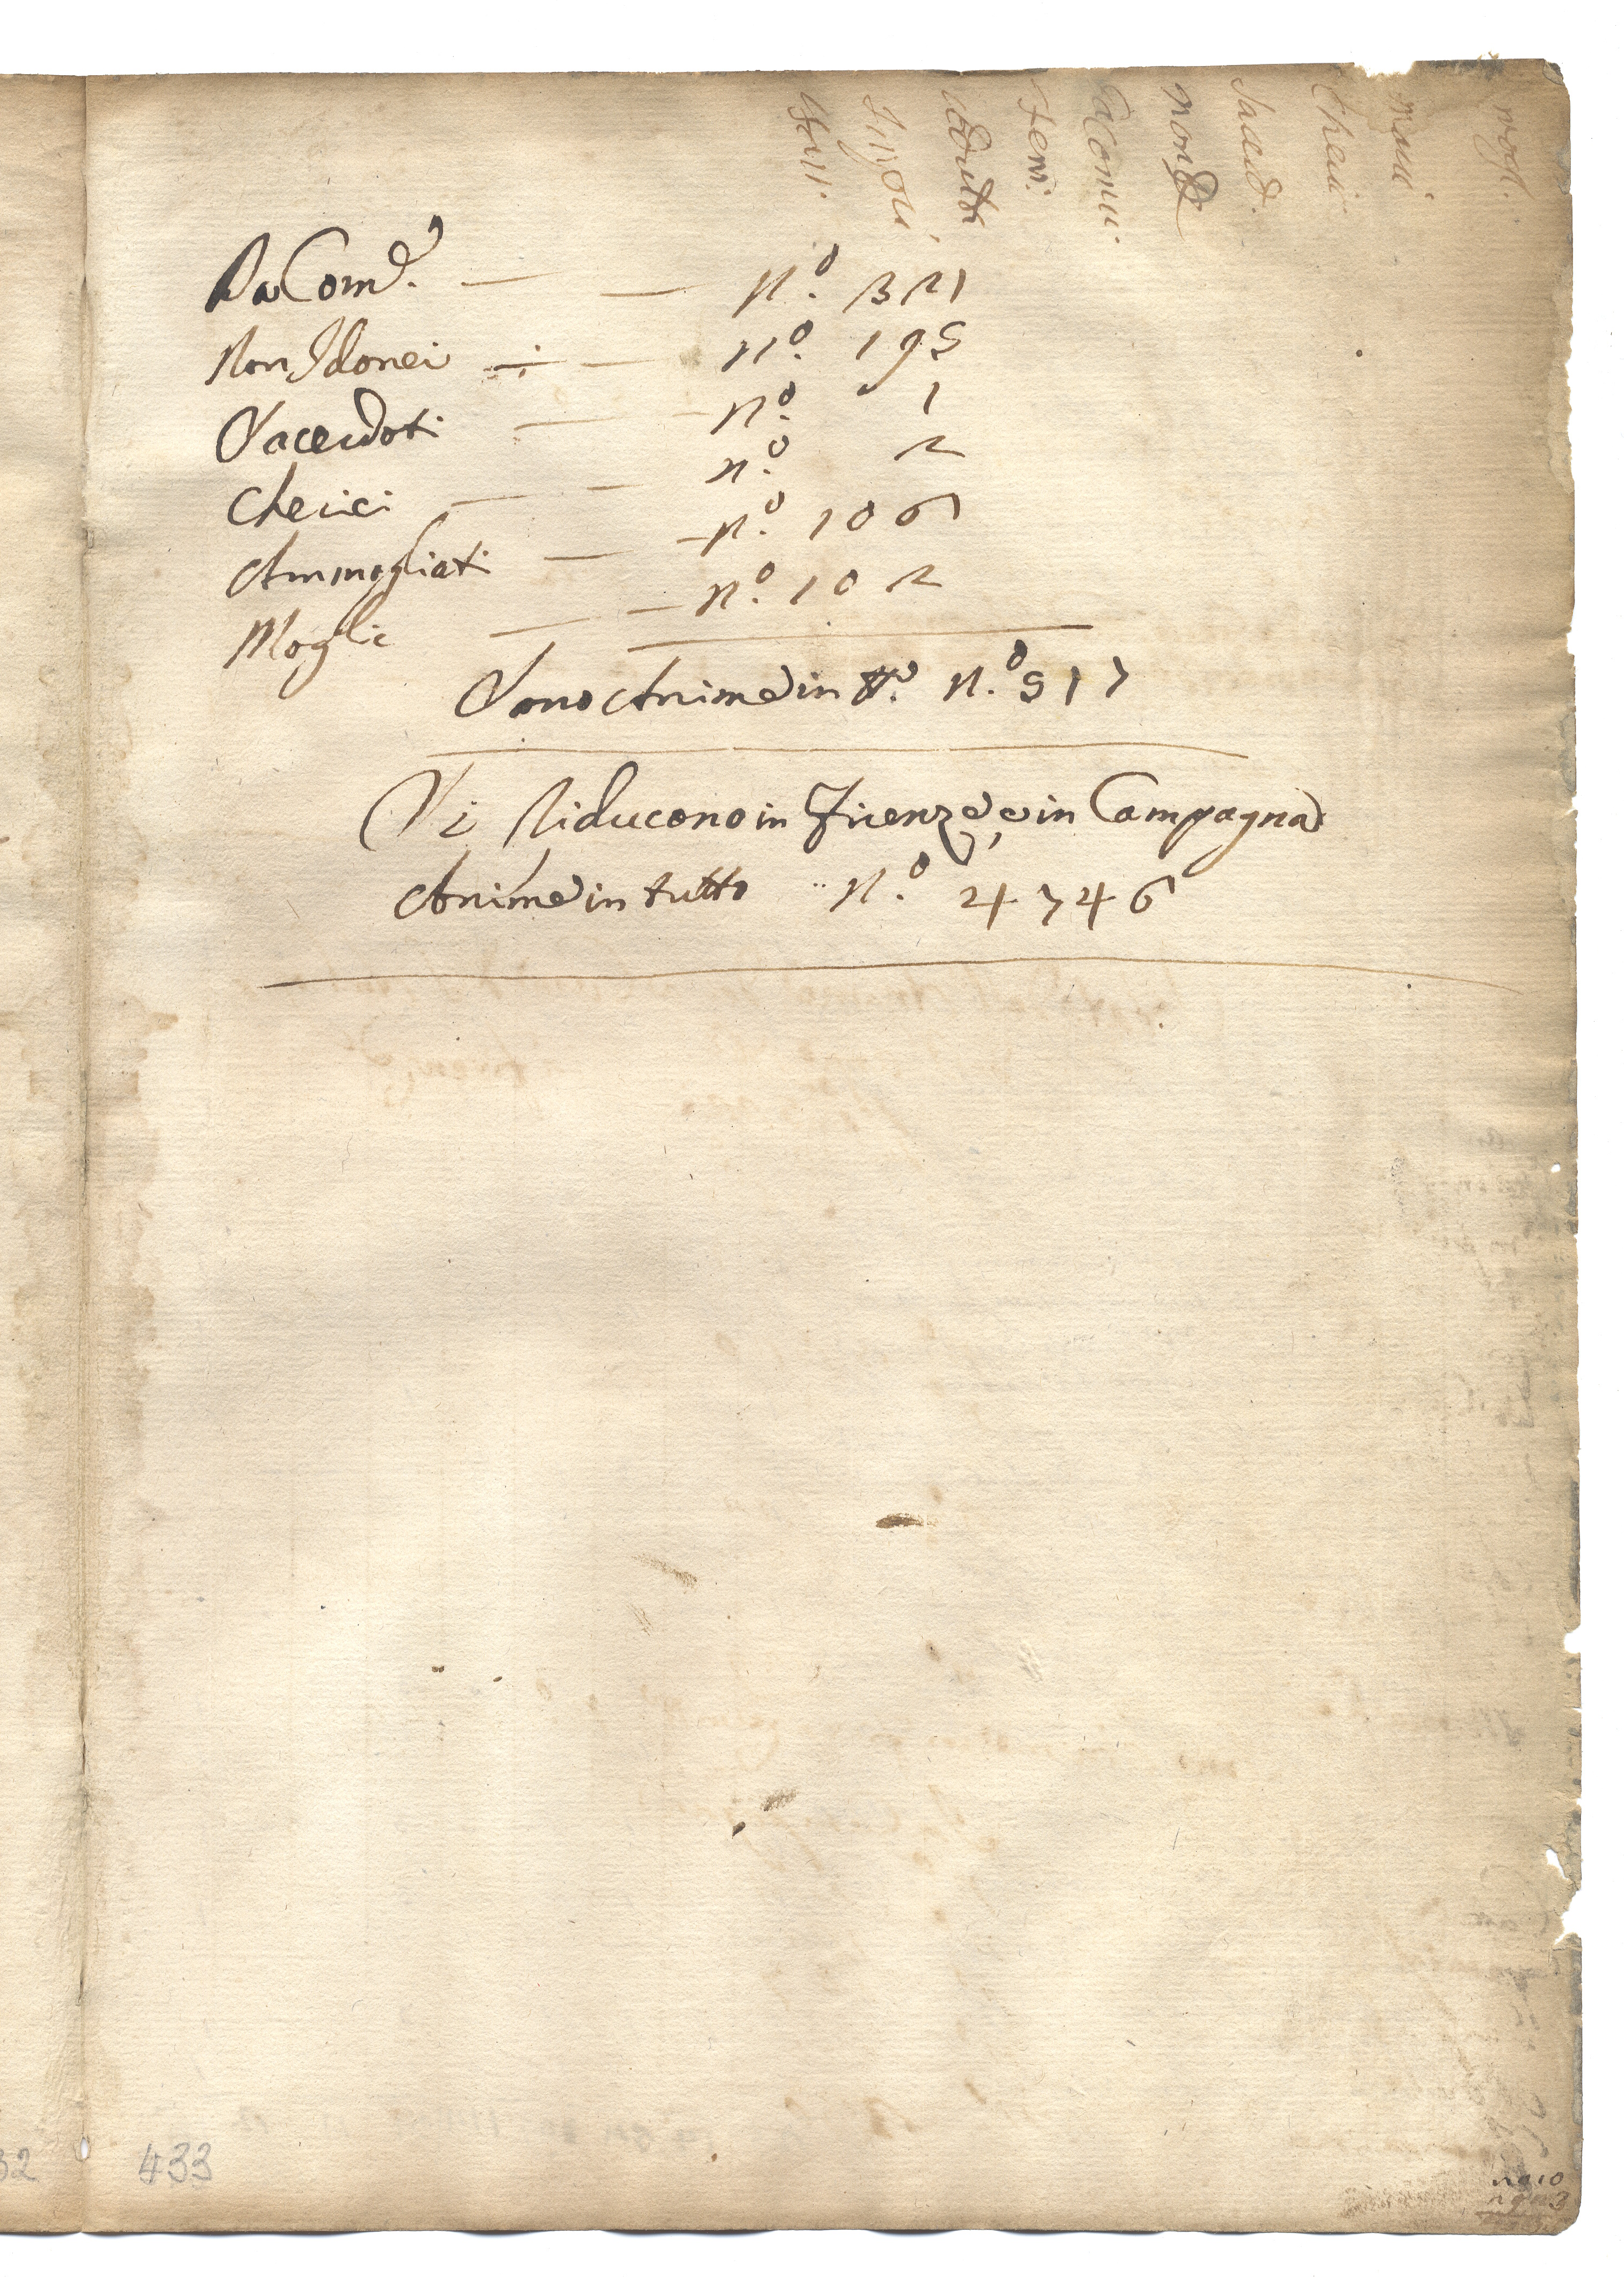 mogl.
Sacerd.
a Comu.
Fem.
Da Com.e — — N.º 321
Non Idonei — — N.º 195
Sacerdoti — N.º 1
Cherici — — N.º 2
Ammogliati — — N.º 106
Mogli — — N.º 102
Sono Anime in tt.o N.º 517
Si Riducono in Firenze, e in Campagna
Anime in tutto N.º 4746
32
433